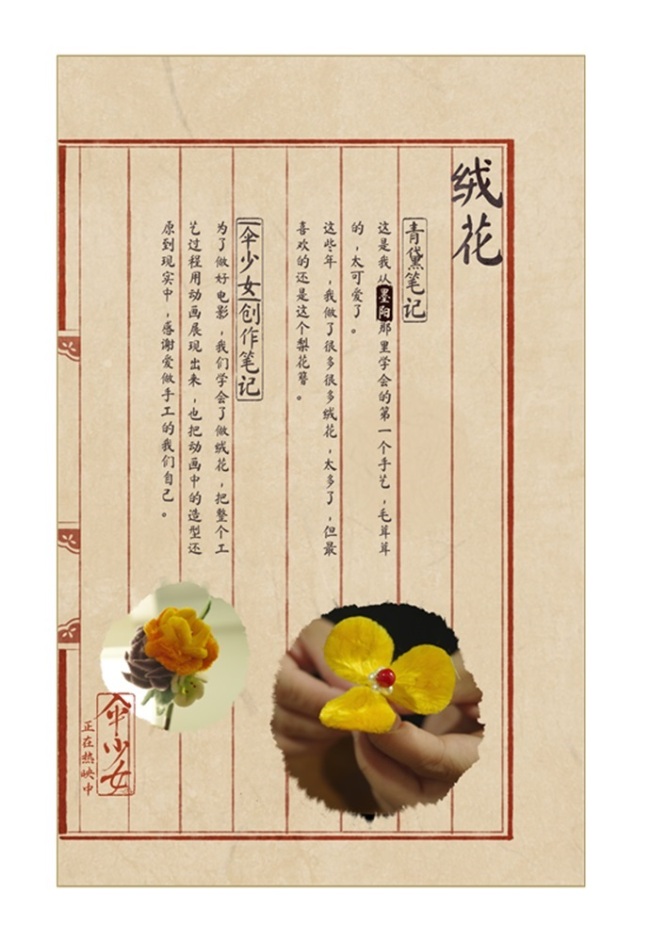 绒花
青黛笔记
这是我从墨陶那里学会的第一个手艺，毛茸茸
的，太可爱了。
这些年，我做了很多很多绒花，太多了，但最
喜欢的还是这个梨花簪。
伞少女创作笔记
为了做好电影，我们学会了做绒花，把整个工
艺过程用动画展现出来，也把动画中的造型还
原到现实中，感谢爱做手工的我们自己。
伞少女
正在热映中